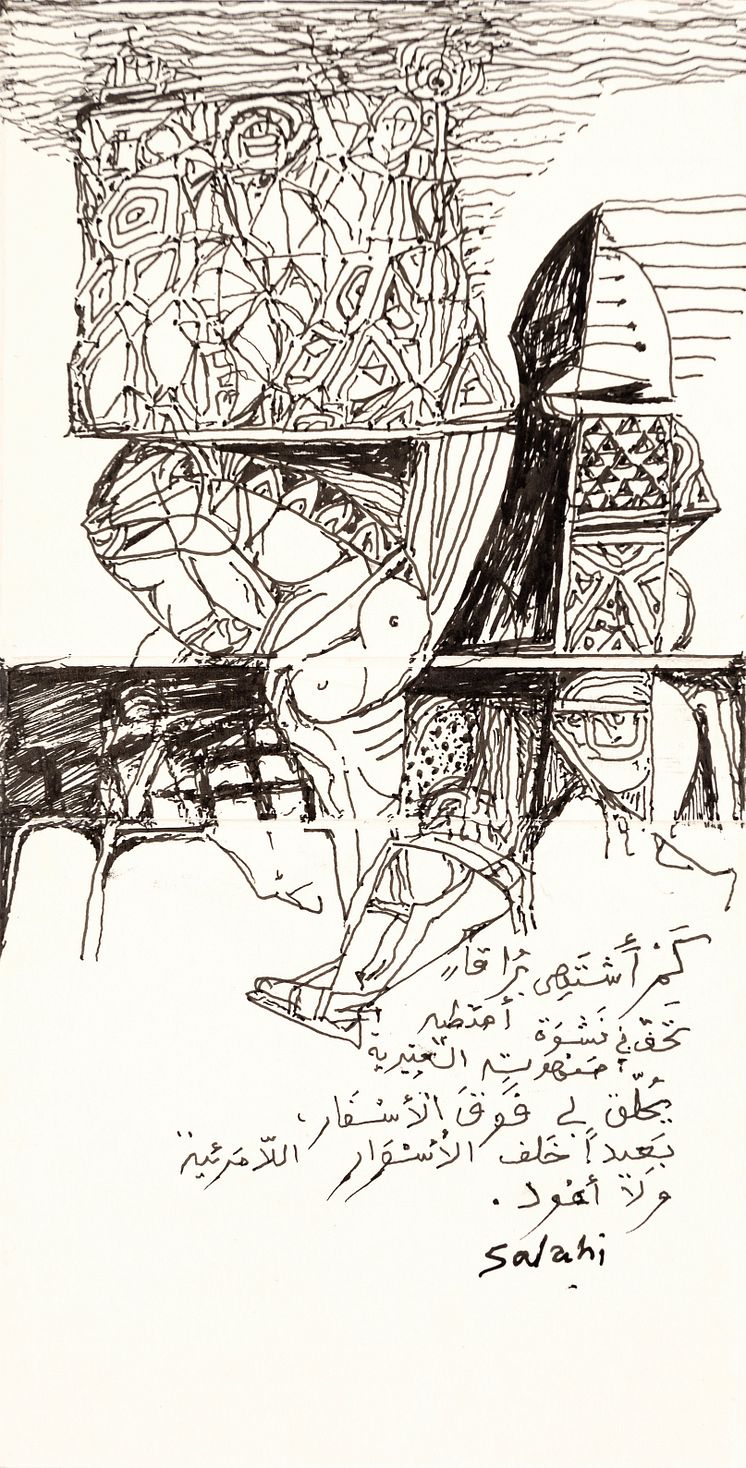 كَمْ أَشْتَهِي بُرَاقاً
أمتطيه
تَحُفّ في نَشْوَة
يُحلّق لي فَوقَ الأسْفَار،
بَعيداً خَلف الأسْوَار اللّامَرئية
وَلَا أعُود.
salahi